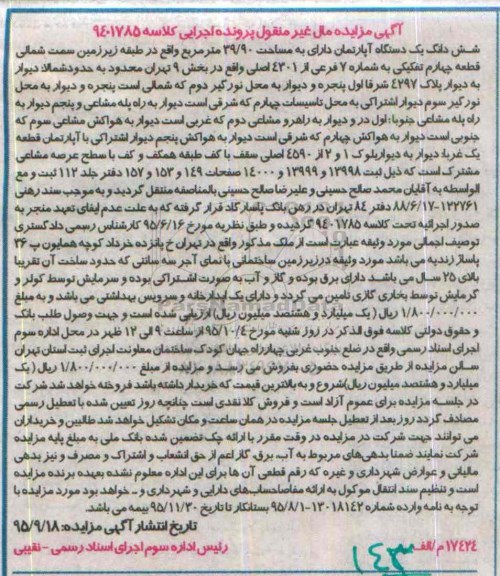 آگهی مزایده مال غیر منقول پرونده اجرایی کلاسه ۹۴۰۱۷۸۵
شش دانگ یک دستگاه آپارتمان دارای به مساحت ۳۹/۹۰ مترمربع واقع در طبقه زیرزمین سمت شمالی
قطعه چهارم تفکیکی به شماره ۷ فرعی از ۴۳۰۱ اصلی واقع در بخش ۹ تهران محدود به حدودشمالا: دیوار
به دیوار پلاک ۴۲۹۷ شرقا اول پنجره و دیوار به محل نورگیر دوم که شمالی است پنجره و دیوار به محل
نور گیر سوم دیوار اشتراکی به محل تاسیسات چهارم که شرقی است دیوار به راه پله مشاعی و پنجم دیوار به
راه پله مشاعی جنوبا: اول در و دیوار به راهرو مشاعی دوم که غربی است دیوار به هواکش مشاعی سوم که
جنوبی است دیوار به هواکش چهارم که شرقی است دیوار به هواکش پنجم دیوار اشتراکی با آپارتمان قطعه
یک غربا: دیوار به دیواربلوک ۱ و ۲ از ۴۵۹۰ اصلی سقف با کف طبقه همکف و کف با سطح عرصه مشاعی
مشترک است که ذیل ثبت ۱۳۹۹۸ و ۱۳۹۹۹ و ۱۴۰۰۰ صفحات ۱۴۹ و ۱۵۳ و ۱۵۷ دفتر جلد ۱۱۲ ثبت و مع
الواسطه به آقایان محمد صالح حسینی و علیرضا صالح حسینی بالمناصفه منتقل گردید و به موجب سند رهنی
۱۲۲۷۶۱-۸۸/۶/۱۷ دفتر ۸۴ تهران در رهن بانک پاسارگاد قرار گرفته که به علت عدم ایفای تعهد منجر به
صدور اجرائیه تحت کلاسه ۹۴۰۱۷۸۵ گردیده و طبق نظریه مورخ ۹۵/۶/۱۶ کارشناس رسمی دادگستری
توصیف اجمالی مورد وثیقه عبارت است از ملک مذکور واقع در تهران خ پانزده خرداد کوچه همایون پ ۳۶
پاساژ زندیه می باشد مورد وثیقه درزیرزمین ساختمانی با نمای آجر سه سانتی که حدود ساخت آن تقریبا
بالای ۲۵ سال می باشد دارای برق بوده و گاز و آب به صورت اشتراکی بوده و سرمایش توسط کولر و
گرمایش توسط بخاری گازی تامین می گردد و دارای یک ابدارخانه و سرویس بهداشتی می باشد و به مبلغ
۱/۸۰۰/۰۰۰/۰۰۰ ریال ( یک میلیارد و هشتصد میلیون ریال) ارزیابی شده است و جهت وصول طلب بانک
و حقوق دولتی کلاسه فوق الذکر در روز شنبه مورخ ۹۵/۱۰/۴ از ساعت ۹ الی ۱۲ ظهر در محل اداره سوم
اجرای اسناد رسمی واقع در ضلع جنوب غربی چهارراه جهان کودک ساختمان معاونت اجرای ثبت استان تهران
سالن مزایده از طریق مزایده حضوری بفروش می رسد و مزایده از مبلغ ۱/۸۰۰/۰۰۰/۰۰۰ ریال ( یک
میلیارد و هشتصد میلیون ریال)شروع و به بالاترین قیمت که خریدار داشته باشد فروخته خواهد شد شرکت
در جلسه مزایده برای عموم آزاد است و فروش کلا نقدی است چنانچه روز تعیین شده با تعطیل رسمی
مصادف گردد روز بعد از تعطیل جلسه مزایده در همان ساعت و مکان تشکیل خواهد شد طالبین و خریداران
می توانند جهت شرکت در مزایده در وقت مقرر با ارائه چک تضمین شده بانک ملی به مبلغ پایه مزایده
شرکت نمایند ضمنا بدهی های مربوط به آب، برق، گاز اعم از حق انشعاب و اشتراک و مصرف و نیز بدهی
مالیاتی و عوارض شهرداری و غیره که رقم قطعی آن ها برای این اداره معلوم نشده بعهده برنده مزایده
است و تنظیم سند انتقال موکول به ارائه مفاصاحساب های دارایی و شهرداری و ـ خواهد بود مورد مزایده با
توجه به نامه وارده شماره ۱۳۰۱۸۱۴۲-۹۵/۸/۱ بستانکار تا تاریخ ۹۵/۱۱/۳۰ بیمه می باشد.
تاریخ انتشار آگهی مزایده: ۹۵/۹/۱۸
۱۷۴۲۴/م الف رئیس اداره سوم اجرای اسناد رسمی - نقیبی
۱۴۳